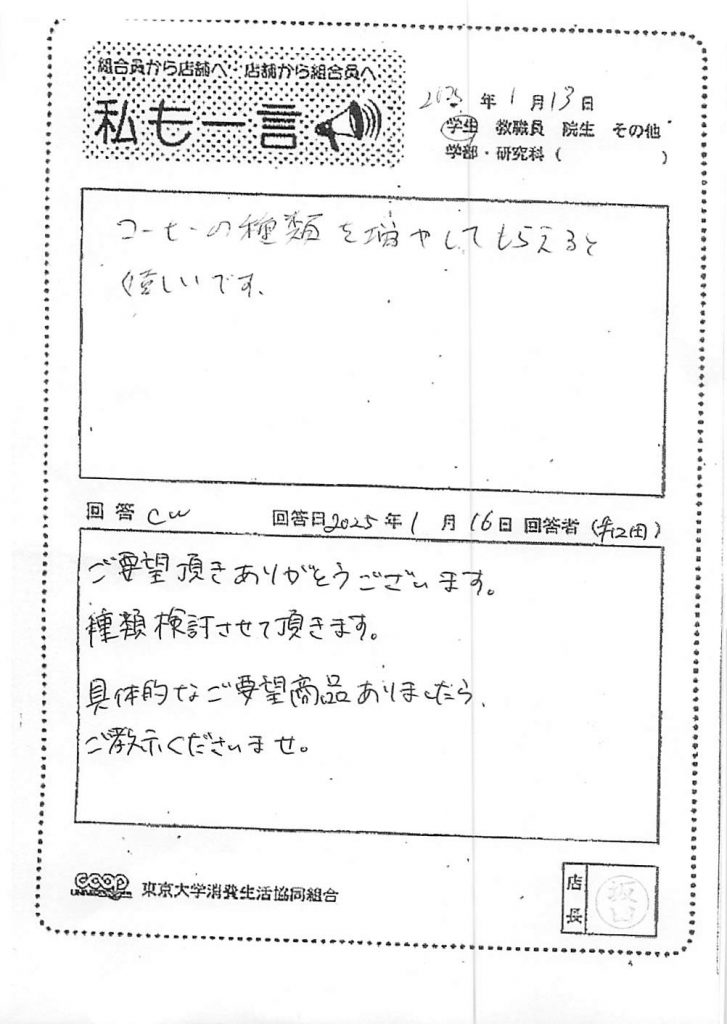 組合員から店舗へ 店舗から組合員へ
私も一言
2025 年 1 月 13 日
学生 教職員 院生 その他
学部・研究科 ( )
コーヒーの種類を増やしてもらえると
嬉しいです。
回答
回答日2025年 1 月 16日 回答者 ( )
ご要望頂きありがとうございます。
種類検討させて頂きます。
具体的なご要望商品ありましたら、
ご教示くださいませ。
coop 東京大学消費生活協同組合
店長 坂口